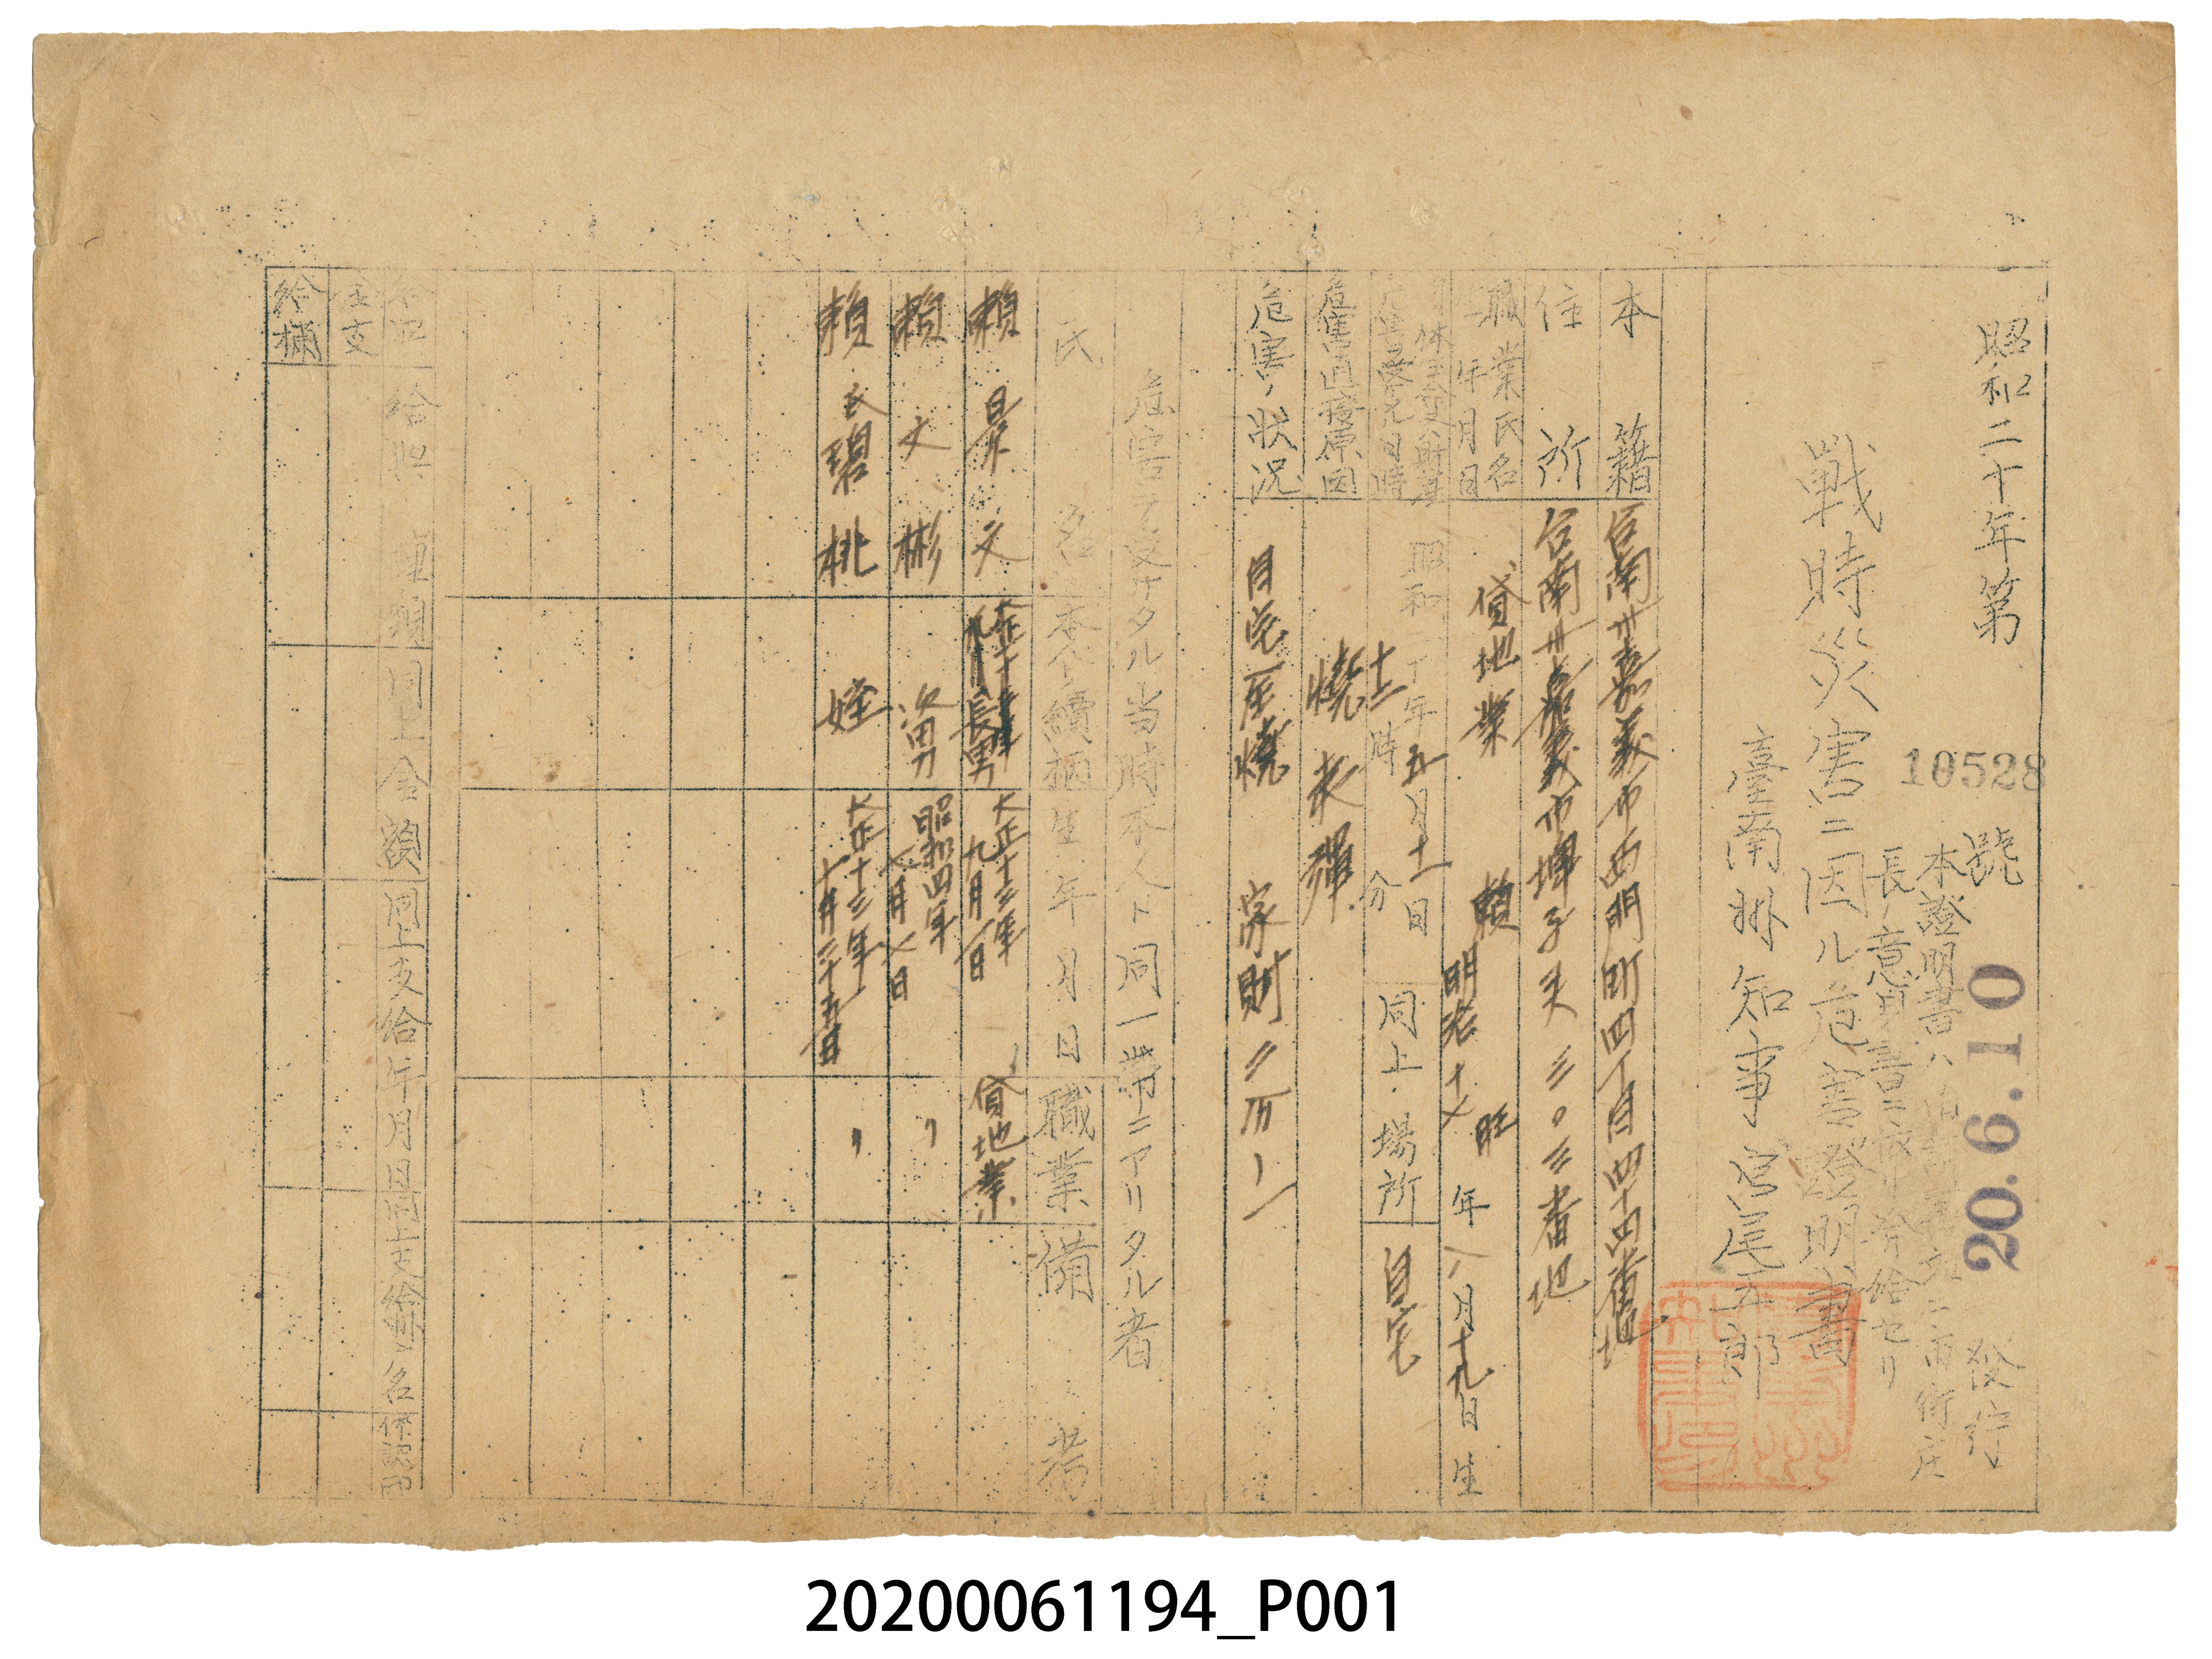 昭和二十年第 10528 號 發行
20.6.10
本證明書ハ
長ノ意見書ニ依リ發給セリ
戰時災害ニ因ル危害證明書
臺南州知事宮尾五郎
本籍 台南州嘉義市西門町四丁目四十四番地
住所 台南州嘉義市埤子頭三〇三番地
職業氏名 貸地業 賴 旺
年月日 明治十七年八月十九日生
昭和二十年五月十二日 同上場所 自宅
危害ヲ受ケタル日時 十二時 分
危害直接原因 燒夷彈
危害ノ狀況 自宅全燒 家財
危害ヲ受ケタル当時本人ト同一世帶ニアリタル者
氏名 本人トノ續柄 生年月日 職業 備考
賴 文 長男 大正十三年九月一日 貸地業
賴文彬 次男 昭和四年七月七日 〃
賴氏碧桃 姪 大正十三年十月二十五日 〃
給與種類 同上金額 同上支給年月日 同上支給廳名 係認印
支
給欄
20200061194_P001